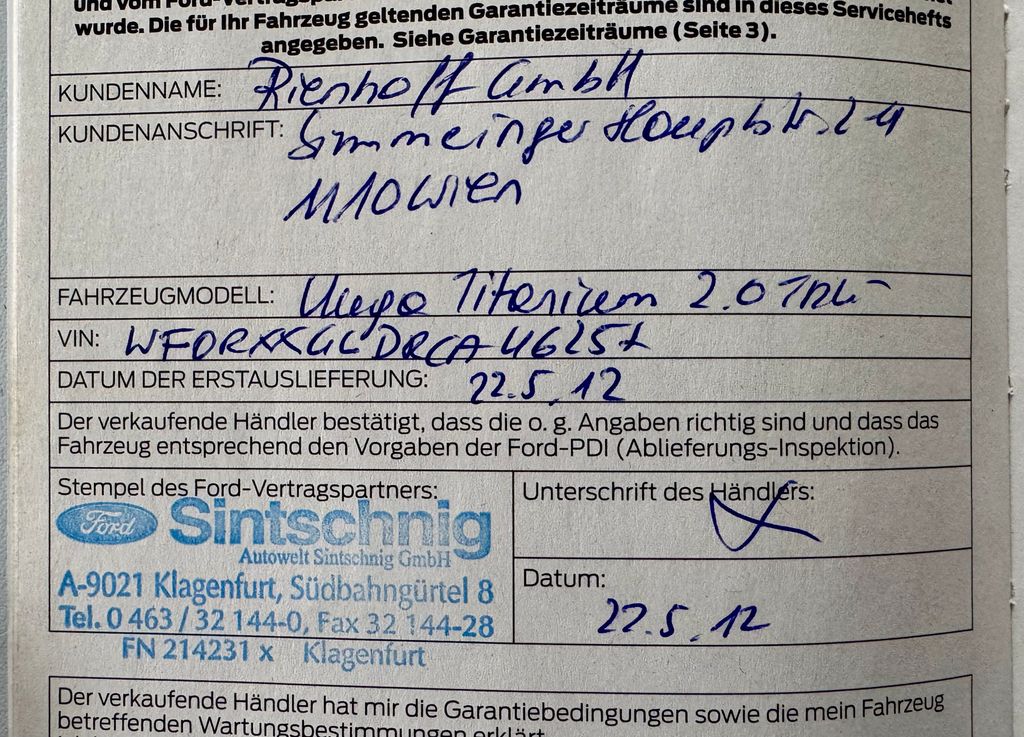 und vom Ford-Vertragspar
wurde. Die für Ihr Fahrzeug geltenden Garantiezeiträume sind in dieses Servicehefts
angegeben. Siehe Garantiezeiträume (Seite 3).
KUNDENNAME: Rienhoff GmbH
KUNDENANSCHRIFT: Simmeringer Hauptstr. 2-4
1110 Wien
FAHRZEUGMODELL: Titanium 2.0 TDCi
VIN:
DATUM DER ERSTAUSLIEFERUNG: 22.5.12
Der verkaufende Händler bestätigt, dass die o. g. Angaben richtig sind und dass das
Fahrzeug entsprechend den Vorgaben der Ford-PDI (Ablieferungs-Inspektion).
Stempel des Ford-Vertragspartners:
Ford Sintschnig
Autowelt Sintschnig GmbH
A-9021 Klagenfurt, Südbahngürtel 8
Tel. 0 463 / 32 144-0, Fax 32 144-28
FN 214231 x Klagenfurt
Unterschrift des Händlers:
Datum:
22.5.12
Der verkaufende Händler hat mir die Garantiebedingungen sowie die mein Fahrzeug
betreffenden Wartungsbestimmungen erklärt